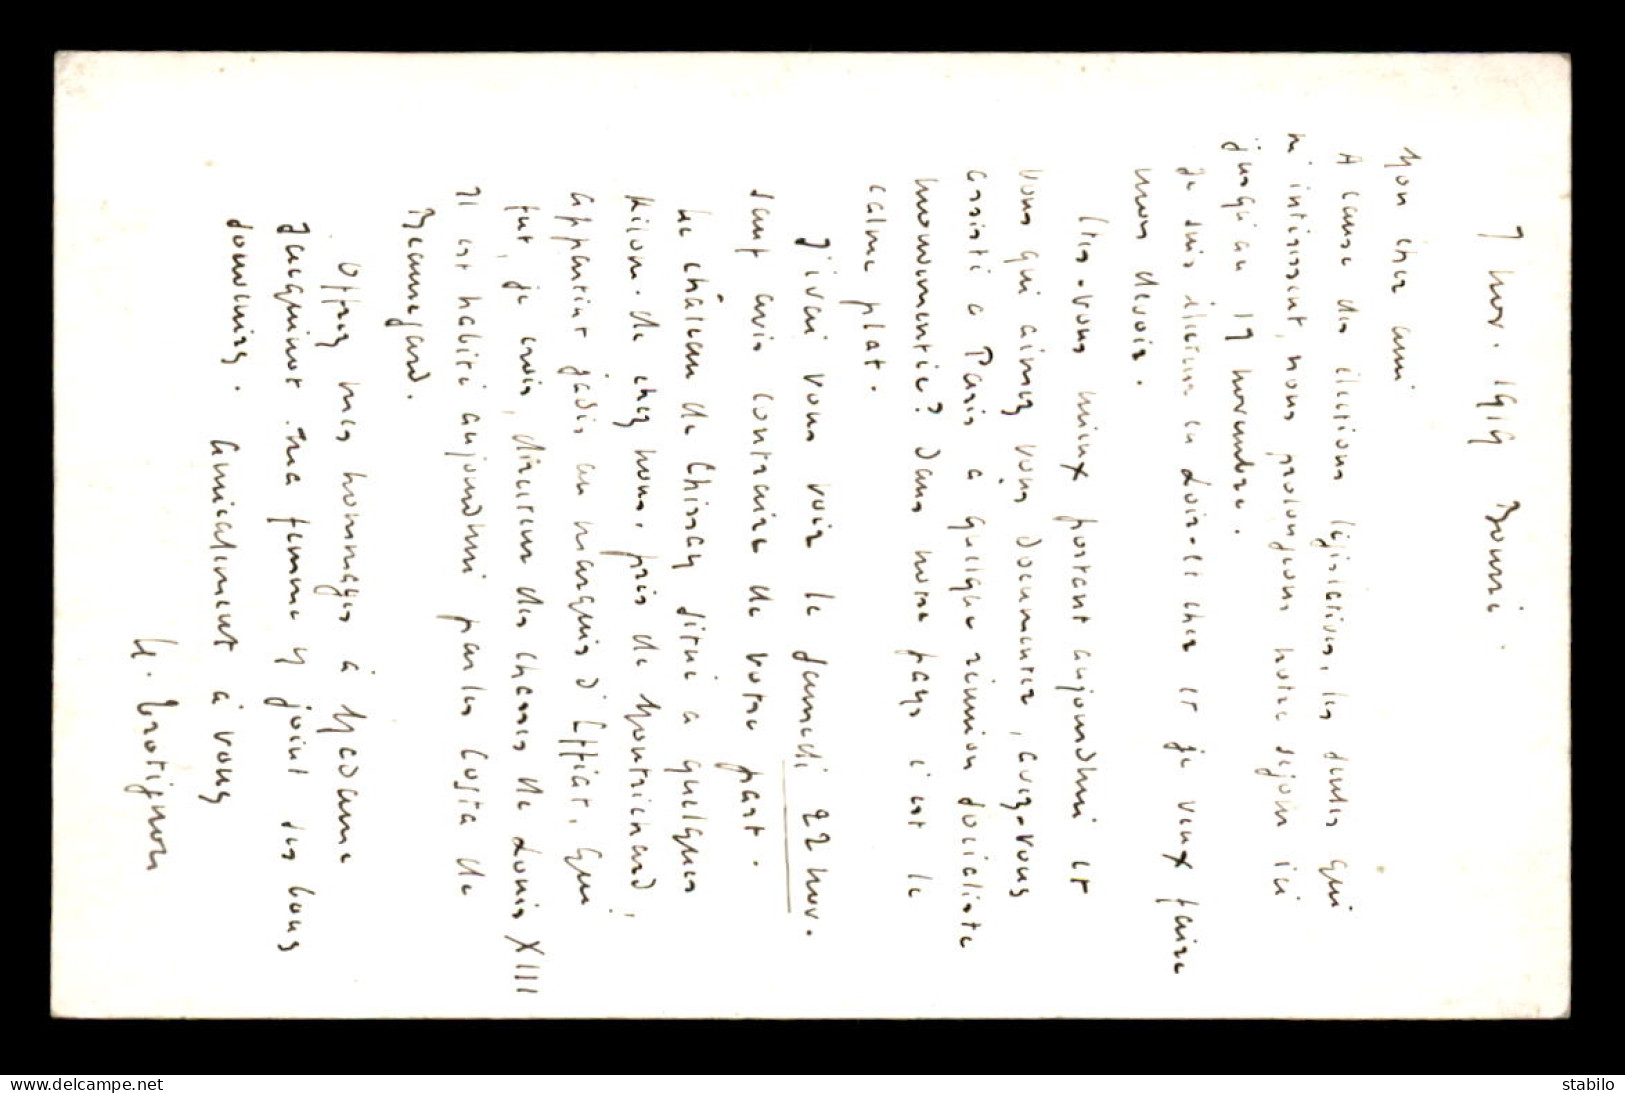 7 nov. 1919 Bourré.
Mon cher ami
A cause des élections législatives, les seules qui
m'intéressent, nous prolongeons notre séjour ici
jusqu'au 17 novembre.
Je suis électeur en Loir-et-cher et je veux faire
mon devoir.
Etes-vous mieux portant aujourd'hui et
vous qui aimez vous documenter, avez-vous
assisté à Paris à quelque réunion socialiste
mouvementée? Dans notre pays c'est le
calme plat.
J'irai vous voir le samedi 22 nov.
sauf avis contraire de votre part.
Le château de Chissay situé à quelques
kilom. de chez nous, près de Montrichard,
appartint jadis au marquis d'Effiat, qui
fut, je crois, directeur des chasses de Louis XIII
Il est habité aujourd'hui par les Costa de
Beauregard.
Offrez mes hommages à Madame
Jacquinot. Ma femme y joint ses bons
souvenirs. Amicalement à vous
Trotignon
www.delcampe.net
stabilo